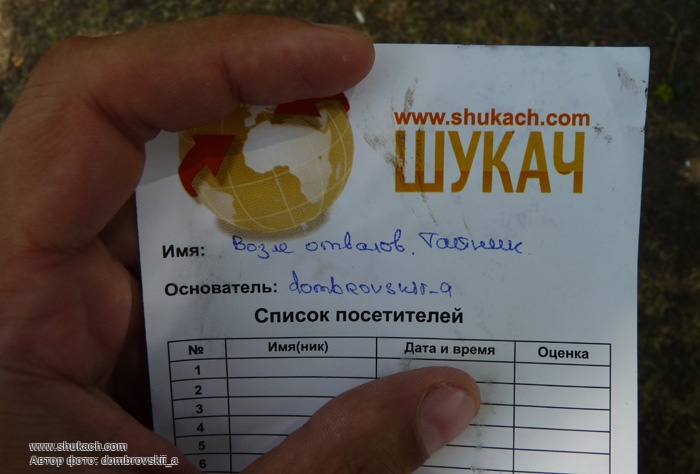 www.shukach.com
ШУКАЧ
Имя: Возле отвалов. Тайник
Основатель: dombrovskii_a
Список посетителей
№ Имя(ник) Дата и время Оценка
1
2
3
4
5
6
www.shukach.com
Автор фото: dombrovskii_a